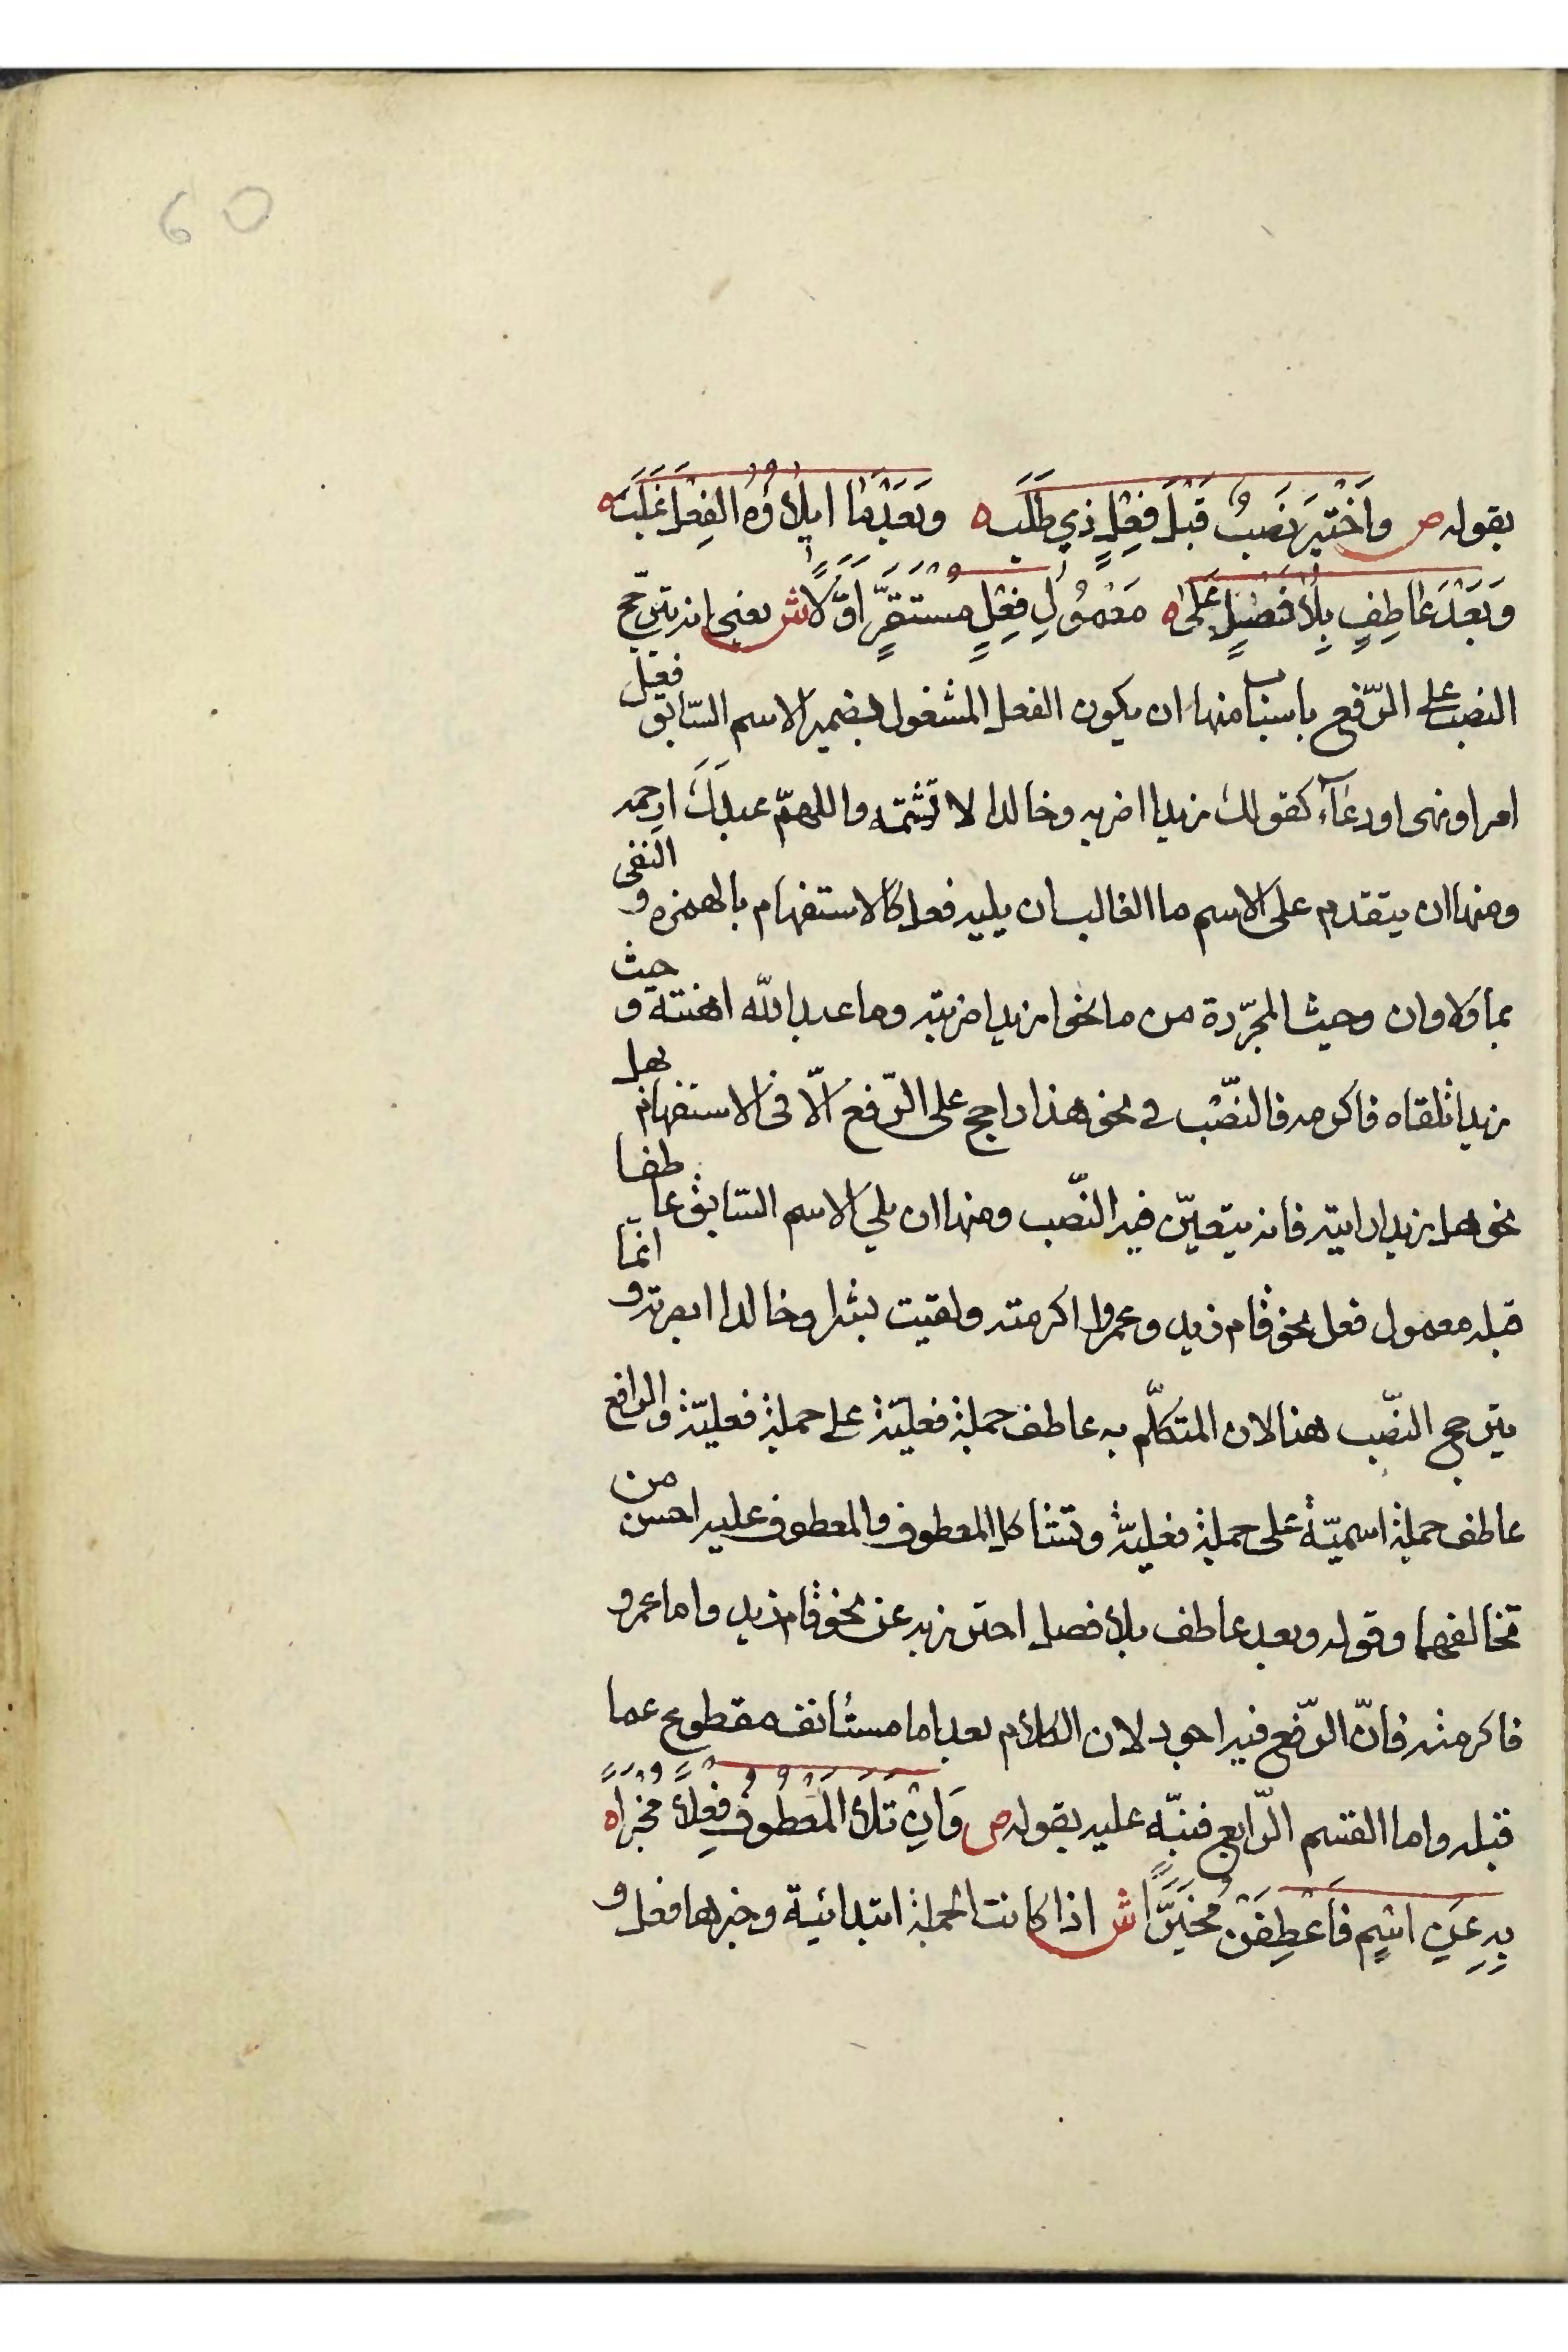 60
بقوله ص وَاخْتِيرَ نَصْبٌ قَبْلَ فِعْلٍ ذِي طَلَبْ ه وَبَعْدَ مَا اِيلَاؤُهُ الْفِعْلَ غَلَبْ ه
وَبَعْدَ عَاطِفٍ بِلَا فَصْلٍ عَلَى ه مَعْمُولِ فِعْلٍ مُسْتَقِرٍّ اَوَّلَا ش يعني انه يترجّح
النصب على الرّفع باسباب منها ان يكون الفعل المشغول بضمير الاسم السّابق فعل
امر او نهى او دعآء كقولك زيدا اضربه وخالدا لا تشتمه واللهمّ عبدَكَ ارحمه
ومنها ان يتقدم على الاسم ما الغالب ان يليه فعل كالاستفهام بالهمزه و النفى
بما ولا وان وحيث المجرّدة من ما نحو ازيدا ضربته وما عبد الله اهنته و حيث
زيدا تلقاه فاكرمه فالنّصب في نحو هذا راجح على الرّفع الّا فى الاستفهام بهل
نحو هل زيدا رايته فانه يتعيّن فيه النّصب ومنها ان يلي الاسم السّابق عاطفا
قبله معمول فعل نحو قام زيد وعمروا اكرمته ولقيت بشرا وخالدا ابصرته و انّما
يترجح النصّب هنا لان المتكلّم به عاطف جملة فعليّة على جملة فعليّة والرافع
عاطف جملة اسميّة على جملة فعليّة وتشاكل المعطوف والمعطوف عليه احسن من
تخالفهما وقوله وبعد عاطف بلا فصل احترز به عن نحو قام زيد واما عمرو
فاكرمته فانّ الرّفع فيه اجود لان الكلام بعد اما مستئانف مقطوع عما
قبله واما القسم الرّابع فنبّه عليه بقوله ص وَاِنْ تَلَا الْمَعْطُوفُ فِعْلًا مُخْبَرَا ه
بِهِ عَنِ اسْمٍ فَاعْطِفَنْ مُخَيَّرَا ش اذا كانت الجملة ابتدائية وخبرها فعل و